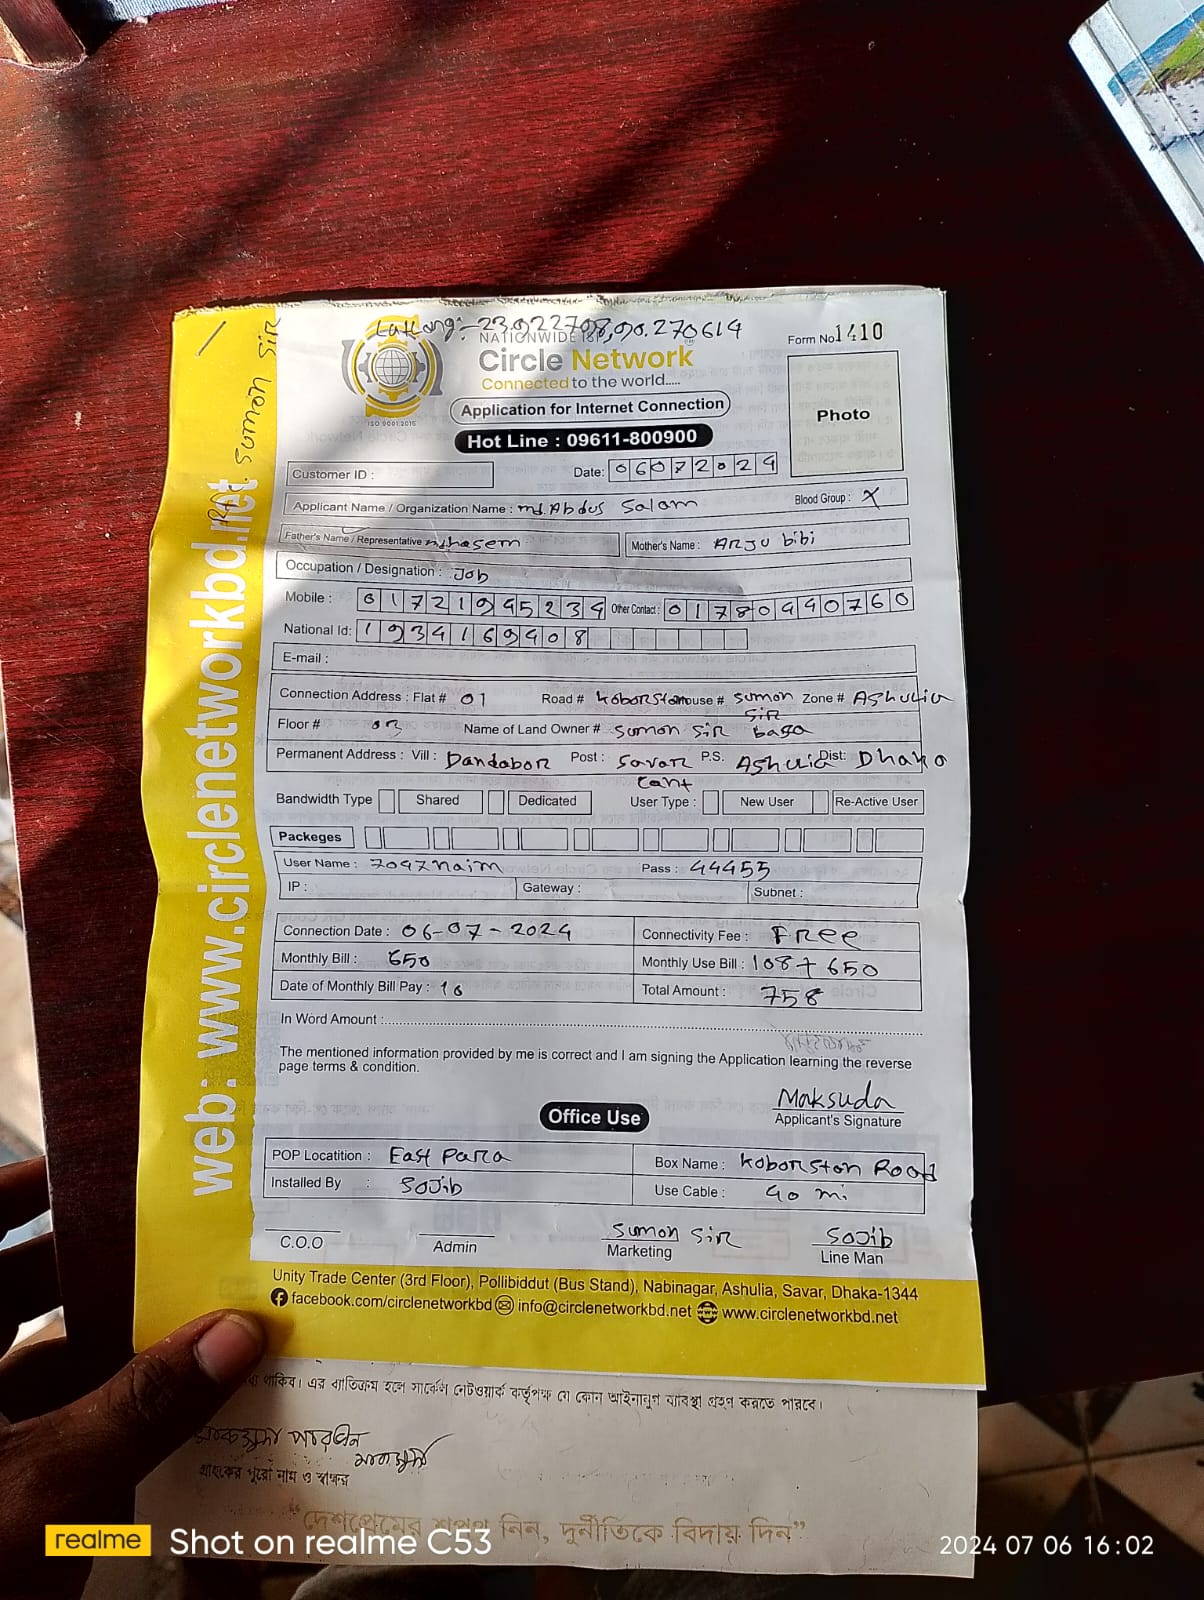 Latlong:- 23.922798,90.270614
NATIONWIDE ISP
Circle Network
Connected to the world.....
ISO 9001:2015
Form No 1410
Photo
Application for Internet Connection
Hot Line : 09611-800900
Customer ID :
Date: 06072024
Applicant Name / Organization Name : md Abdus Salam
Blood Group : X
Father's Name / Representative md hasem
Mother's Name : ARJU bibi
Occupation / Designation : Job
Mobile : 01721945234 Other Contact : 01780440760
National Id: 1934169408
E-mail :
Connection Address : Flat # 01 Road # koborstan House # Sumon Sir Zone # Ashulia
Floor # 03 Name of Land Owner # Sumon Sir basa
Permanent Address : Vill : Dandabor Post : Savar Cant P.S. Ashulia Dist: Dhaka
Bandwidth Type Shared Dedicated User Type : New User Re-Active User
Packeges
User Name : 7047naim Pass : 44455
IP : Gateway : Subnet :
Connection Date : 06-07-2024 Connectivity Fee : FRee
Monthly Bill : 650 Monthly Use Bill : 108+650
Date of Monthly Bill Pay : 16 Total Amount : 758
In Word Amount :
The mentioned information provided by me is correct and I am signing the Application learning the reverse
page terms & condition.
Maksuda
Applicant's Signature
Office Use
POP Locatition : East Para Box Name : Koborston Road
Installed By : Sojib Use Cable : 40 mi
Sumon Sir Sojib
C.O.O Admin Marketing Line Man
Unity Trade Center (3rd Floor), Pollibiddut (Bus Stand), Nabinagar, Ashulia, Savar, Dhaka-1344
facebook.com/circlenetworkbd info@circlenetworkbd.net www.circlenetworkbd.net
web: www.circlenetworkbd.net
Sumon Sir
থাকিব। এর ব্যতিক্রম হলে সার্কেল নেটওয়ার্ক কর্তৃপক্ষ যে কোন আইনানুগ ব্যবস্থা গ্রহণ করতে পারবে।
মাকসুদা পারভীন
মাকসুদা
গ্রাহকের পুরো নাম ও স্বাক্ষর
“দেশপ্রেমের শপথ নিন, দুর্নীতিকে বিদায় দিন”
realme Shot on realme C53
2024 07 06 16:02